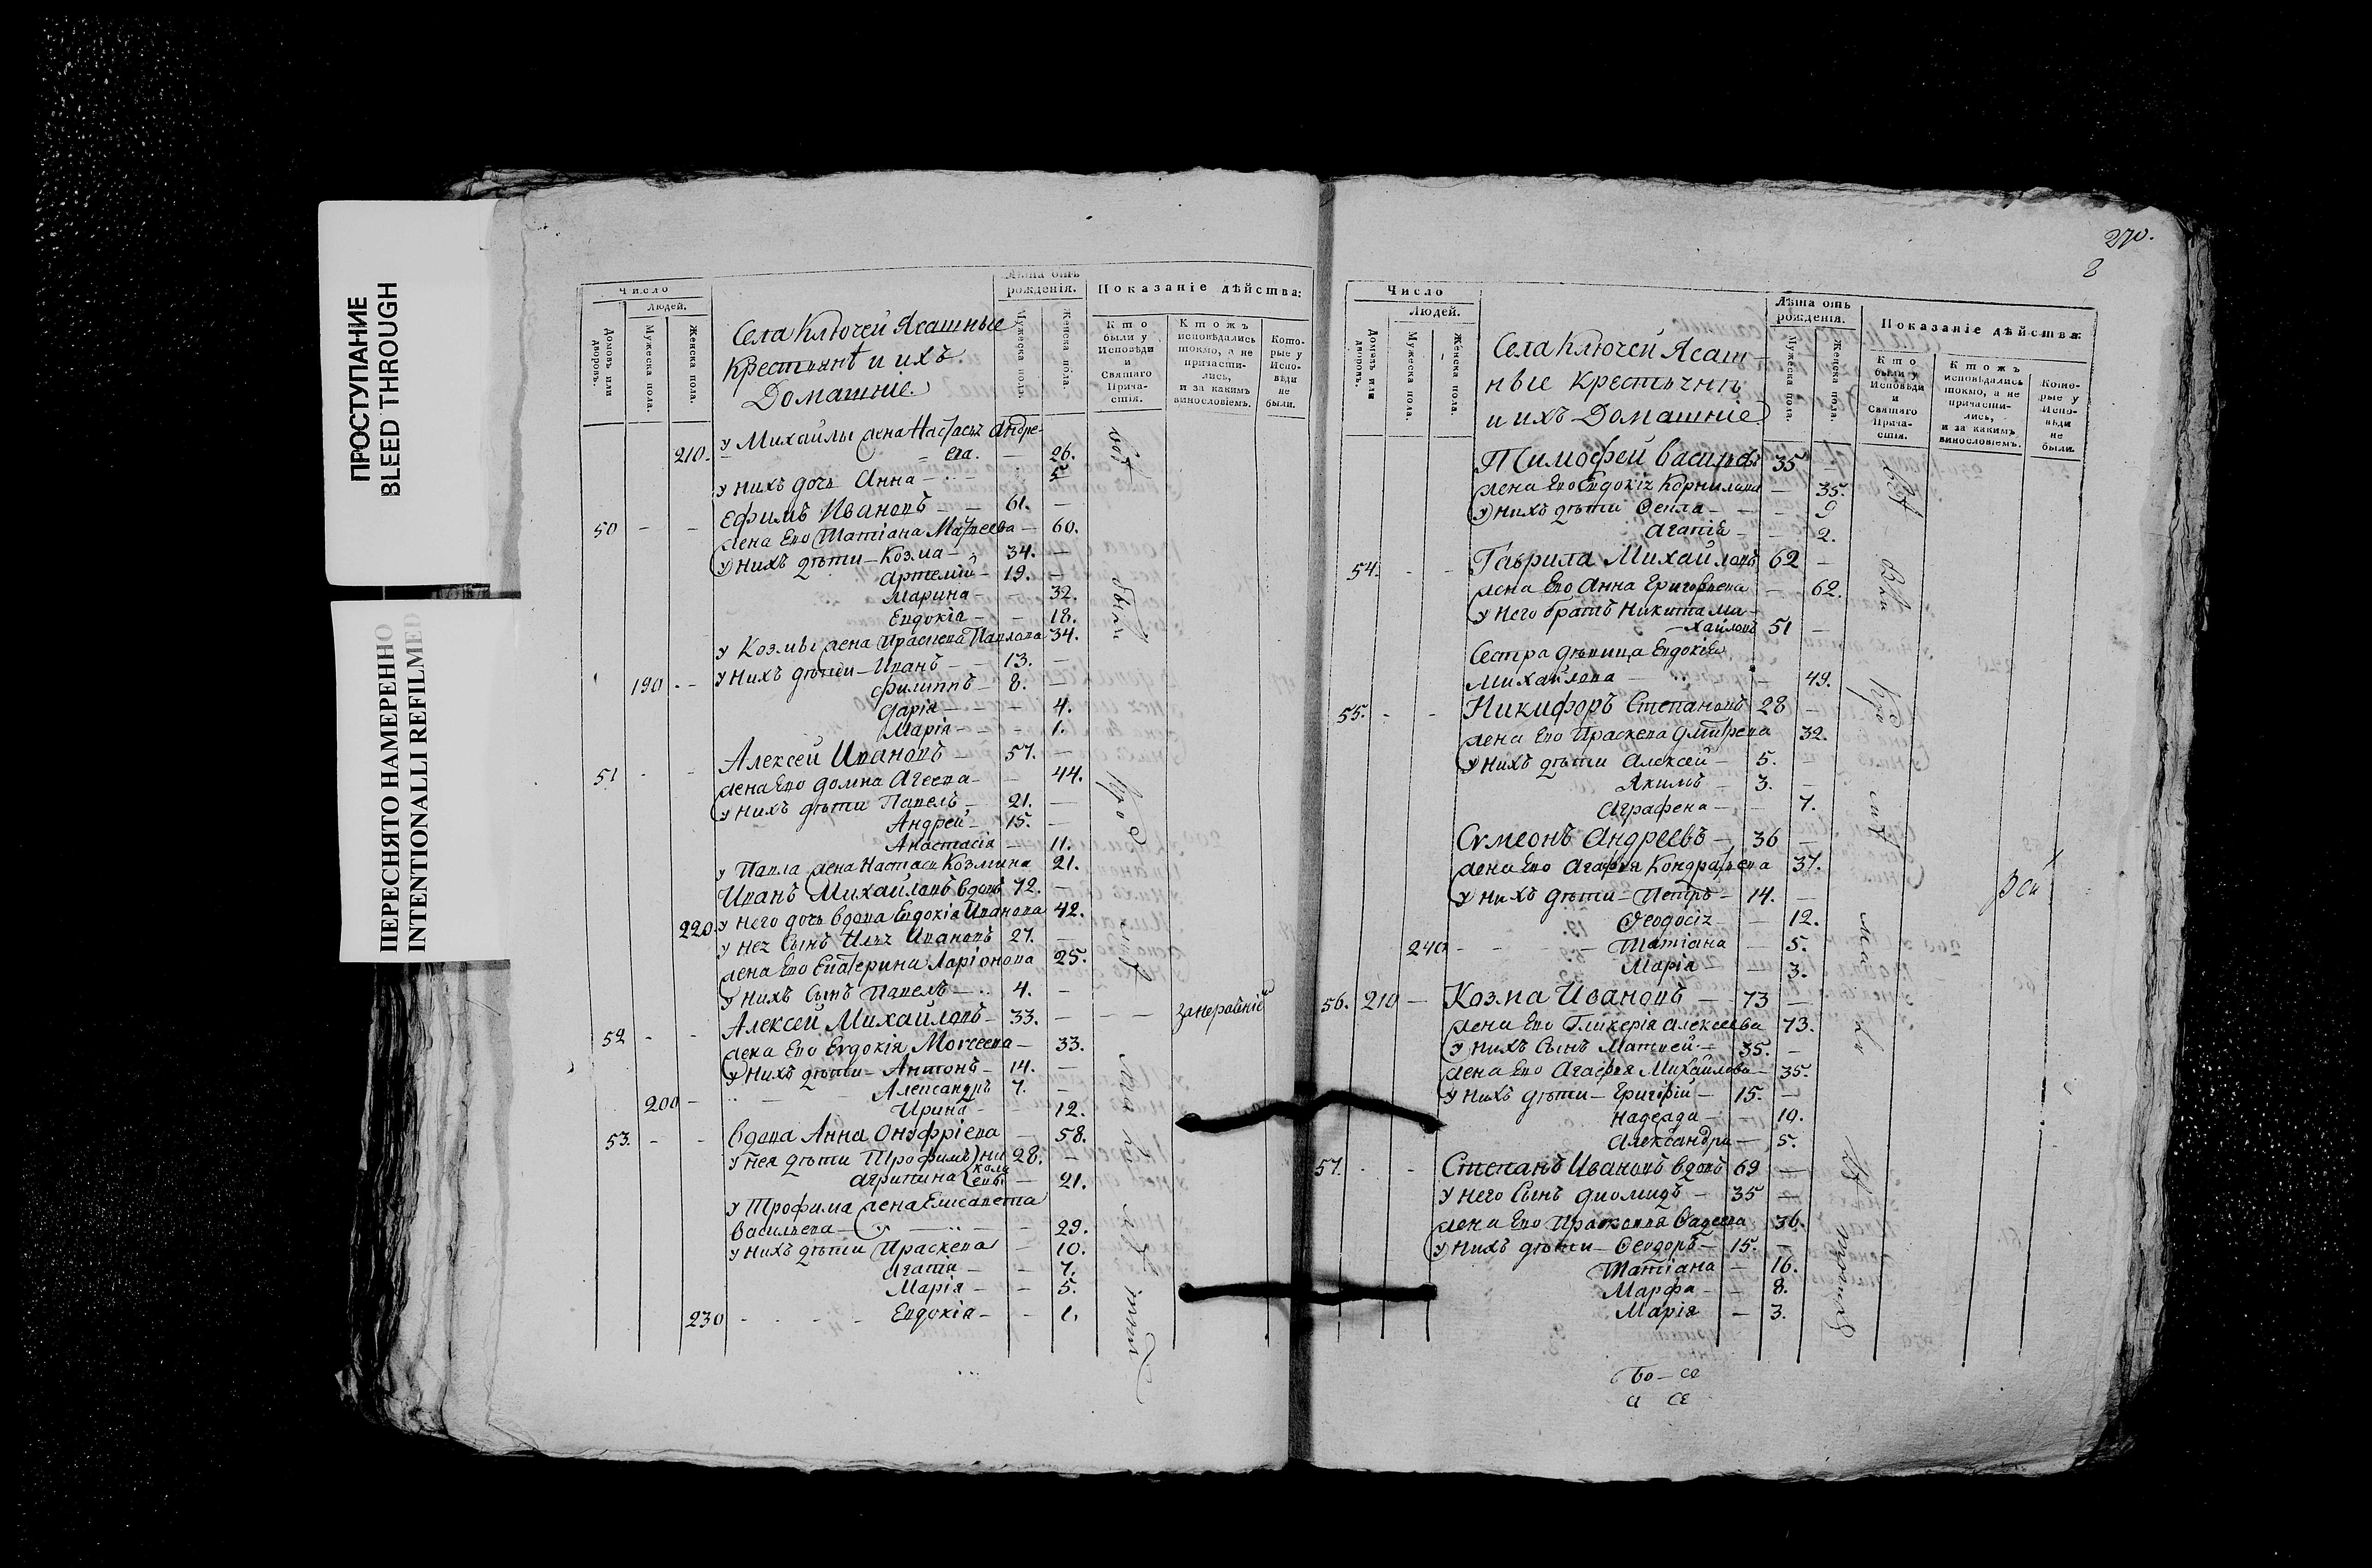 ПРОСТУПАНИЕ
BLEED THROUGH
ПЕРЕСНЯТО НАМЕРЕННО
INTENTIONALLI REFILMED
Число
Людей.
Домовъ или дворовъ.
Мужеска пола.
Женска пола.
Села Ключей Ясашные
Крестьянѣ и ихъ
Домашніе.
Лѣта отъ рожденія.
Мужеска пола.
Женска пола.
Показаніе дѣйства:
Кто были у Исповѣди и Святаго Причастія.
Ктожъ исповѣдались токмо, а не причастились, и за какимъ винословіемъ.
Которые у Исповѣди не были.
210. У Михайлы жена Настасья Андре-
ева. — 26.
У нихъ дочь Анна — 5
50 Ефимъ Ивановъ — 61. —
жена Его Татіана Матвеева — 60.
У нихъ дѣти — Козма — 34. —
Артемій — 19. —
Марина — 32.
Евдокія — 18.
У Козмы жена Праскева Павлова 34.
190 У нихъ дѣтеи — Иванъ — 13. —
Филиппъ — 8. —
Дарія — 4.
Марія — 1.
51 Алексеи Ивановъ — 57. —
жена Его Домна Агеева — 44.
У нихъ дѣти Павелъ — 21. —
Андрей — 15. —
Анастасія — 11.
У Павла жена Настасья Козмина 21.
Иванъ Михайловъ вдовъ 72. —
220. У него дочь вдова Евдокія Иванова 42.
У нея сынъ Илья Ивановъ 27. —
жена Его Екатерина Ларіонова 25.
У нихъ сынъ Павелъ — 4. —
52 Алексей Михайловъ — 33. —
жена Его Евдокія Моисеева — 33.
У нихъ дѣти — Антонъ — 14. —
200 Александръ 7. —
Ирина — 12.
53. вдова Анна Онуфріева 58.
У нея дѣти Трофимъ 28. —
Агрипина — 21.
У Трофима жена Елисавета
Васильева — 29.
У нихъ дѣти Праскева — 10.
Агафія — 7.
Марія — 5.
230 Евдокія — 1.
270.
8
Число
Людей.
Домовъ или дворовъ.
Мужеска пола.
Женска пола.
Села Ключей Ясаш-
ные крестьянѣ
и ихъ Домашніе
Лѣта отъ рожденія.
Мужеска пола.
Женска пола.
Показаніе дѣйства:
Кто были у Исповѣди и Святаго Причастія.
Ктожъ исповѣдались токмо, а не причастились, и за какимъ винословіемъ.
Которые у Исповѣди не были.
Тимофей Васильевъ 35 —
жена Его Евдокія Корнилова — 35.
У нихъ дѣти Фекла — 9
Агапія — 2.
54. Гаврила Михайловъ 62 —
жена Его Анна Григорьева — 62.
У него братъ Никита Ми-
хайловъ 51 —
Сестра дѣвица Евдокія
Михайлова — 49.
55. Никифоръ Степановъ 28 —
жена Его Праскева Дмитрева 32.
У нихъ дѣти Алексей — 5.
Якимъ — 3. —
Аграфена — 7.
Сѵмеонъ Андреевъ — 36 —
жена Его Агафія Кондратьева 37.
У нихъ дѣти — Петръ — 14. —
Феодосія — 12.
240 Татіана — 5.
Марія — 3.
56. 210 — Козма Ивановъ — 73 —
жена Его Гликерія Алексеева 73.
У нихъ сынъ Матвей — 35. —
жена Его Агафія Михайлова — 35.
У нихъ дѣти — Григорій — 15. —
Надежда — 10.
Александра — 5.
57. Степанъ Ивановъ вдовъ 69 —
У него сынъ Диомидъ — 35 —
жена Его Прасковія Фадеева 36.
У нихъ дѣти — Феодоръ — 15. —
Татіана — 16.
Марфа — 8.
Марія — 3.